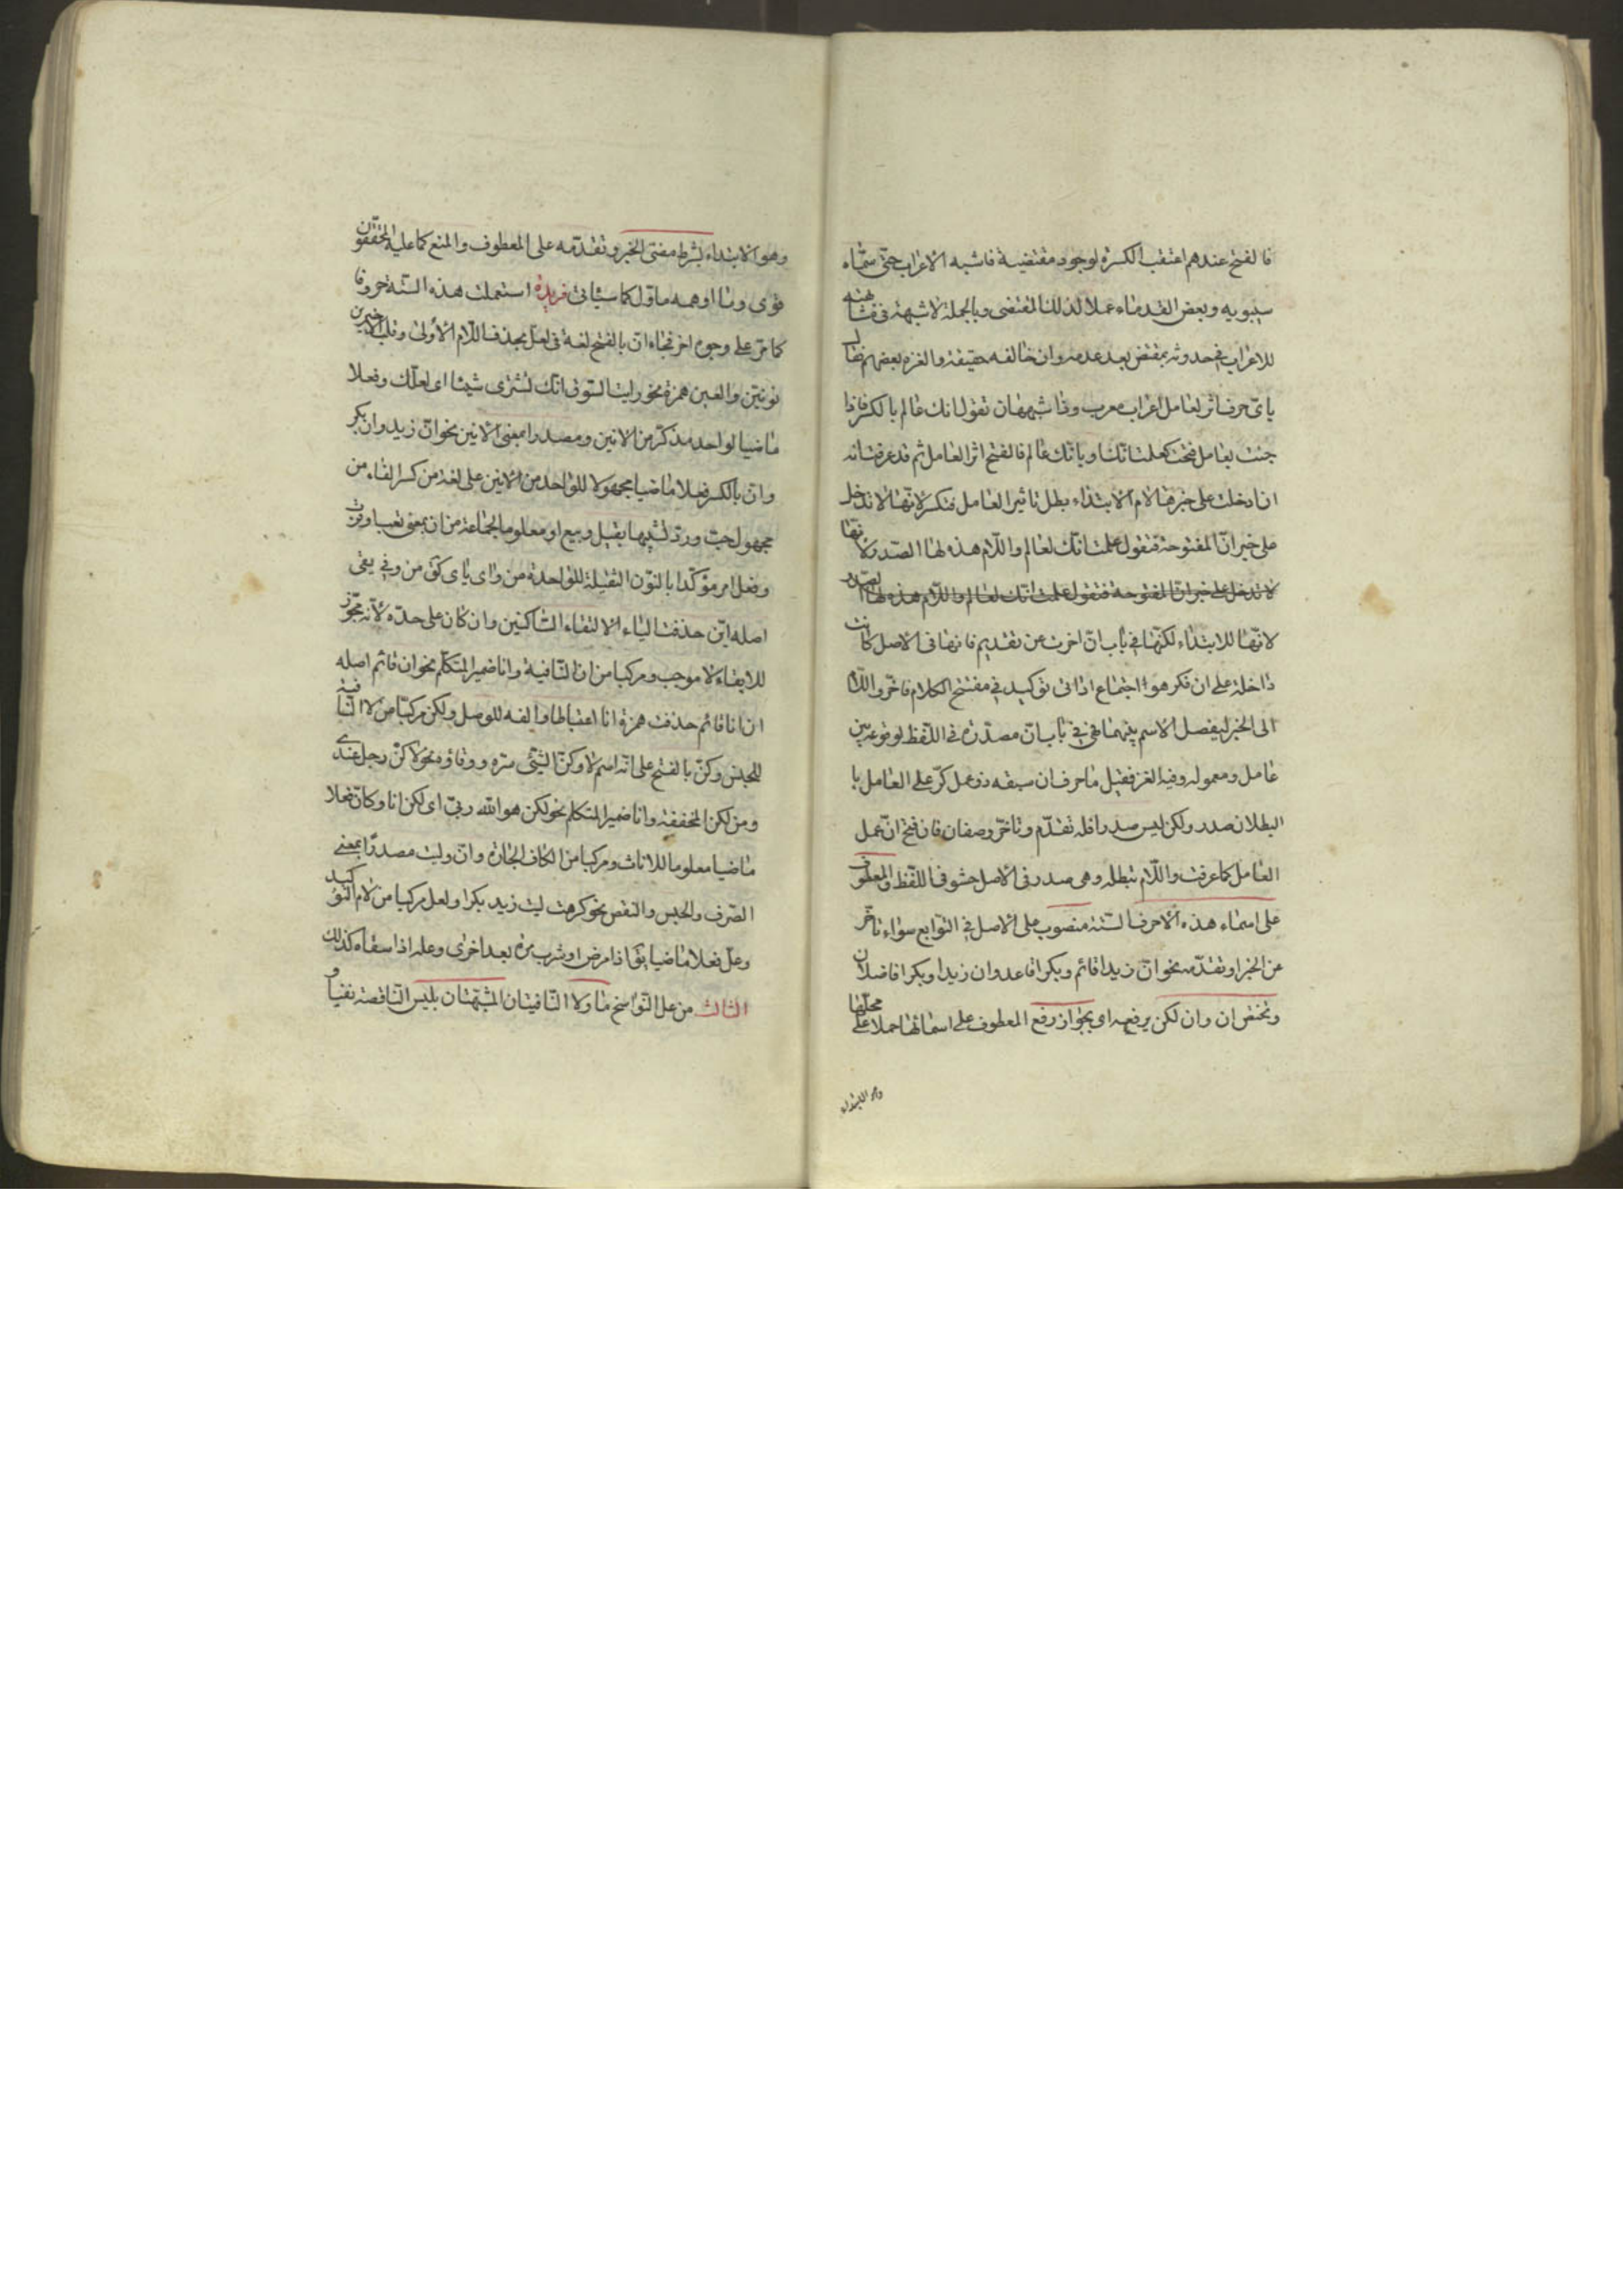 فالفتح عندهم اعتقب الكسرة لوجود مقتضيه فاشبه الاعراب حتى سمّاه
سيبويه وبعض القدماء عملا لذلك المقتضى وبالجملة لا شبهة فى مشابهته
للاعراب فى حدوثه بمقتض بعد عدمه وان خالفه حقيقة والغزه بعضهم فقال
باىّ حرف اثر لعامل اعراب معرب وفا شبهها ان تقول انك عالم بالكسر فاذا
جئت بعامل فتحت كعلمت انك او بانّك عالم فالفتح اثر العامل ثم قد عرفت انه
ان دخلت على خبرها لام الابتداء بطل تاثير العامل فتكسر لانّها لا تدخل
على خبر انّ المفتوحة فتقول علمت انّك لعالم واللّام هذه لها الصدر ولانّها
لا تدخل على خبر ان المفتوحة فتقول علمت انك لعالم واللّام هذه لها الصدر
لانّها للابتداء لكنّها فى باب انّ اخرت عن تقديم فانها فى الاصل كانت
داخلة على ان فكرهوا اجتماع اداتى توكيد فى مفتتح الكلام فاخّروا اللّام
الى الخبر ليفصل الاسم بينهما فهى فى باب انّ مصدّرة فى اللّفظ لوقوعه بين
عامل ومعموله وفيه الغز فقيل ما حرف ان سبقه ذو عمل كرّ على العامل با
البطلان صدر ولكن ليس صدرا فله تقدّم وتاخّر وصفان فان فتح انّ عمل
العامل كما عرفت واللّام تبطله وهى صدر فى الاصل حشو فى اللّفظ والمعطوف
على اسماء هذه الاحرف الستة منصوب على الاصل فى التوابع سواء تاخّر
عن الخبر او تقدّمه نحو انّ زيدا قائم وبكرا قاعد وان زيدا وبكرا فاضلان
وتختص ان وان لكن برفعه اى بجواز رفع المعطوف على اسمائها حملا على محلّها
وهو الابتداء
وهو الابتداء بشرط مضىّ الخبر وتقدّمه على المعطوف والمنع كما عليه المحقّقون
قوى وما اوهمه ماوّل كما سيئاتى فريدة استعملت هذه الستّة حروفا
كما مرّ على وجوه اخر فجاء انّ بالفتح لغة فى لعلّ بحذف اللّام الاولى وقلب الاخيرين
نونين والعين همزة نحو رايت السّوق انّك تشترى شيئا اى لعلّك وفعلا
ماضيا لواحد مذكّر من الانين ومصدرا بمعنى الانين نحو انّ زيد وان بكر
وانّ بالكسر فعلا ماضيا مجهولا للواحد من الانين على لغة من كسر الفاء من
مجهول حبّ وردّ تشبيها بقيل وبيع او معلوما لجماعة من ان بمعنى تعب او قرب
وفعل امر مؤكّدا بالنّون الثقيلة للواحدة من واى ياى كق من وقى يقى
اصله اين حذفت الياء لالتقاء السّاكنين وان كان على حدّه لانّه مجوّز
للابقاء لا موجب ومركبا من ان النّافية وانا ضمير المتكلّم نحو ان قائم اصله
ان انا قائم حذفت همزة انا اعتباطا والفه للوصل ولكن مركبّا من لا النّافية
للجنس وكنّ بالفتح على انّه اسم لا وكنّ الشّئ ستره ووقاؤه نحو لا كنّ رجل عندى
ومن لكن المخففة وانا ضمير المتكلم نحو لكن هو الله ربّى اى لكن انا وكانّ فعلا
ماضيا معلوما للاناث ومركبا من الكاف الجارّة وانّ وليت مصدرّا بمعنى
الصّرف والحبس والنقص نحو كرهت ليت زيد بكرا ولعل مركبا من لام التوكيد
وعلّ فعلا ماضيا يق اذا مرض او شرب مرة بعد اخرى وعله اذا سقاه كذلك
الثالث من علل النّواسخ ما ولا النّافيتان المشبّهتان بليس النّاقصة نفيا و